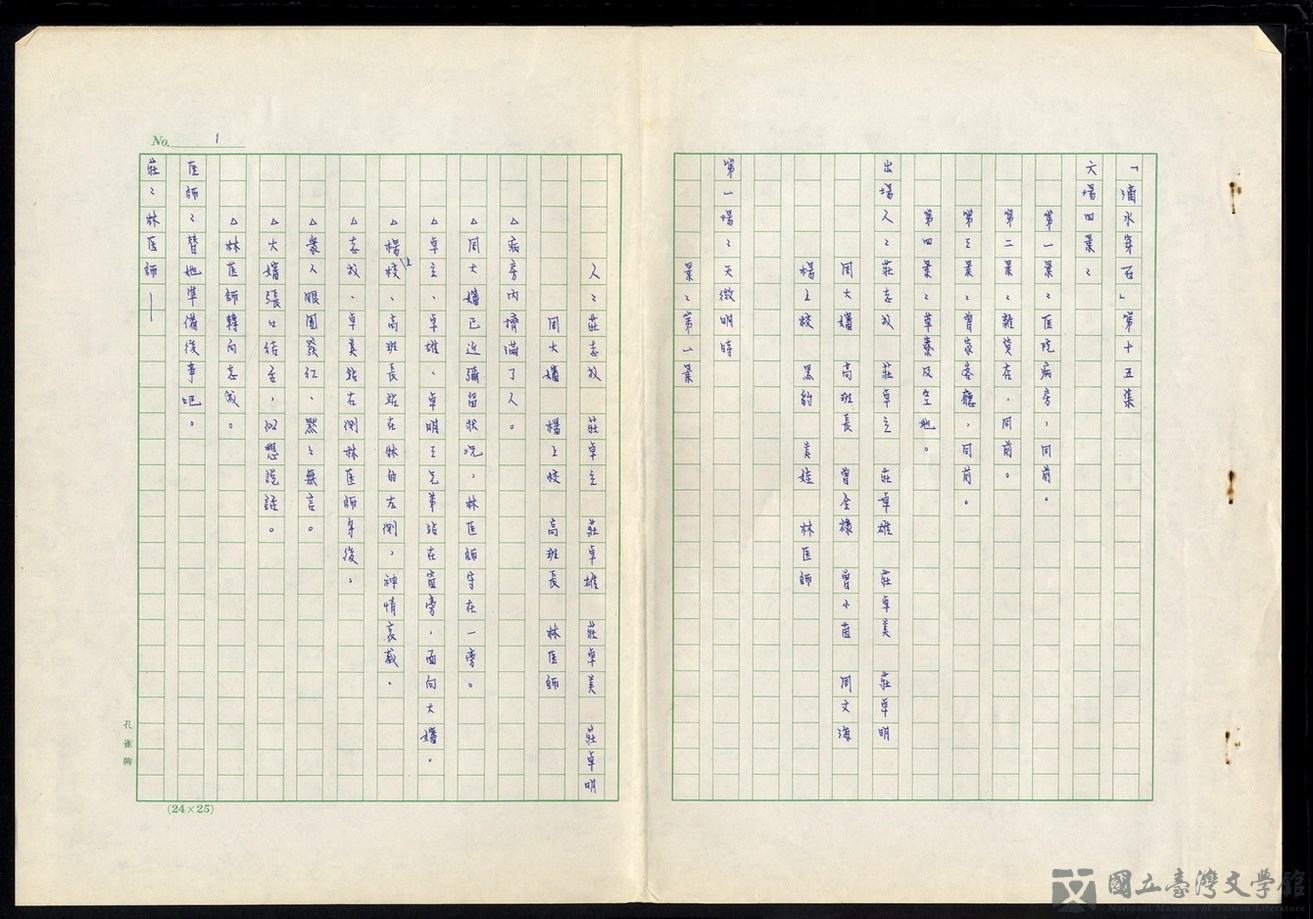 「滴水穿石」第十五集
六場四景：
第一景：医院病房，同前。
第二景：雜貨店，同前。
第三景：曾家客廳，同前。
第四景：草寮及空地。
出場人：莊志成 莊卓立 莊卓雄 莊卓美 莊卓明
周大嬸 高班長 曾全祿 曾小茵 周文海
楊上校 黑豹 美娃 林医師
第一場：天微明時
景：第一景
人：莊志成 莊卓立 莊卓雄 莊卓美 莊卓明
周大嬸 楊上校 高班長 林医師
△病房内擠滿了人。
△周大嬸已近彌留狀況，林医師守在一旁。
△卓立、卓雄、卓明三兄弟站在窗旁，面向大嬸。
△楊上校、高班長站在床的左側，神情哀戚。
△志成、卓美站右側林医師身後。
△衆人眼圈發红、默々無言。
△大嬸張口结舌，似想說話。
△林医師轉向志成。
医師：替她準備後事吧。
莊：林医師——
No. 1
孔雀牌
(24×25)
國立臺灣文學館
National Museum of Taiwan Literature